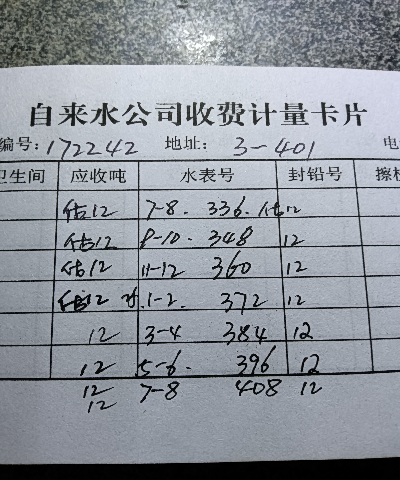 自来水公司收费计量卡片
编号: 172242 地址: 3-401 电
卫生间 应收吨 水表号 封铅号 擦
估12 7-8. 336. 估12
估12 9-10. 348 12
估12 11-12 360 12
12 1-2. 372 12
12 3-4 384 12
12 5-6. 396 12
12 7-8 408 12
12